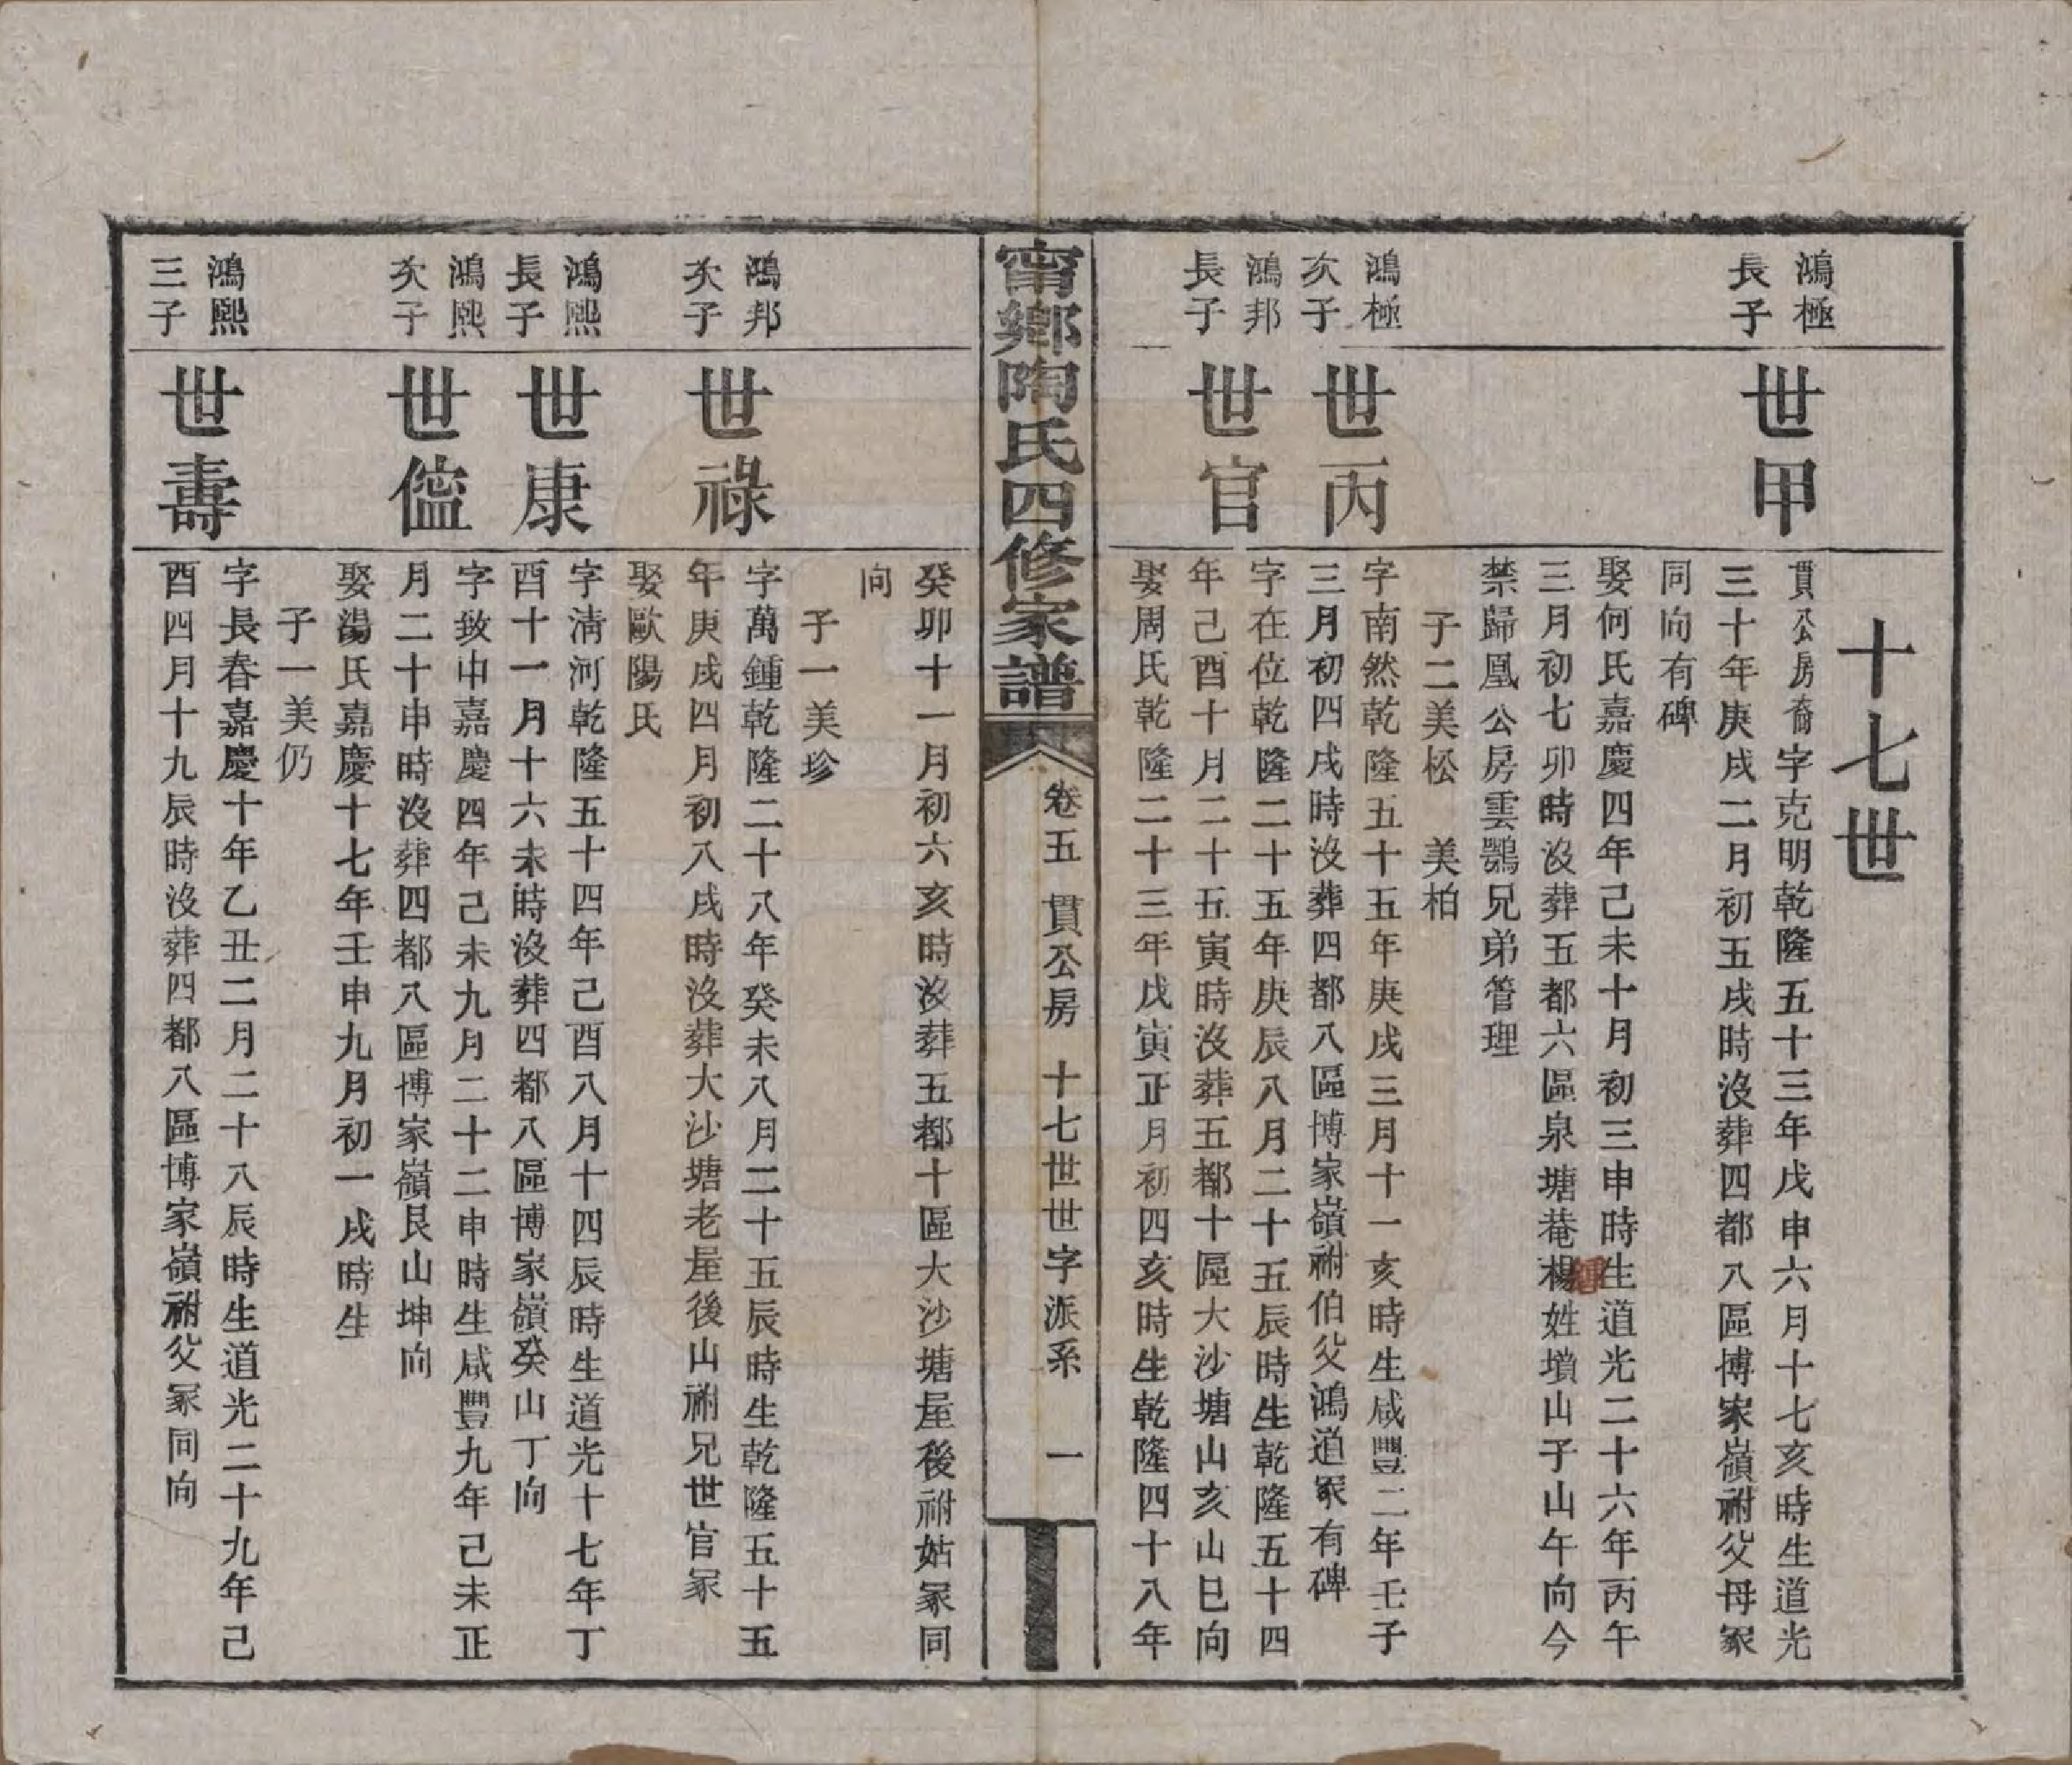 十七世
鴻極
長子
世甲
貫公房裔字克明乾隆五十三年戊申六月十七亥時生道光
三十年庚戌二月初五戌時沒葬四都八區博家嶺祔父母冢
同向有碑
娶何氏嘉慶四年己未十月初三申時生道光二十六年丙午
三月初七卯時沒葬五都六區泉塘菴楊姓墳山子山午向今
禁歸凰公房雲鶚兄弟管理
子二美松 美柏
鴻極
次子
世丙
字南然乾隆五十五年庚戌三月十一亥時生咸豐二年壬子
三月初四戌時沒葬四都八區博家嶺祔伯父鴻道冢有碑
鴻邦
長子
世官
字在位乾隆二十五年庚辰八月二十五辰時生乾隆五十四
年己酉十月二十五寅時沒葬五都十區大沙塘山亥山巳向
娶周氏乾隆二十三年戊寅正月初四亥時生乾隆四十八年
甯鄉陶氏四修家譜
卷五 貫公房 十七世世字派系 一
癸卯十一月初六亥時沒葬五都十區大沙塘屋後祔姑冢同
向
子一美珍
鴻邦
次子
世祿
字萬鍾乾隆二十八年癸未八月二十五辰時生乾隆五十五
年庚戌四月初八戌時沒葬大沙塘老屋後山祔兄世官冢
娶歐陽氏
鴻熙
長子
世康
字清河乾隆五十四年己酉八月十四辰時生道光十七年丁
酉十一月十六未時沒葬四都八區博家嶺癸山丁向
鴻熙
次子
世儘
字致中嘉慶四年己未九月二十二申時生咸豐九年己未正
月二十申時沒葬四都八區博家嶺艮山坤向
娶湯氏嘉慶十七年壬申九月初一戌時生
子一美仍
鴻熙
三子
世壽
字長春嘉慶十年乙丑二月二十八辰時生道光二十九年己
酉四月十九辰時沒葬四都八區博家嶺祔父冢同向